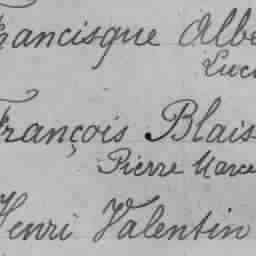 Francisque Albe
Luci
François Blais
Pierre Marce
Henri Valentin